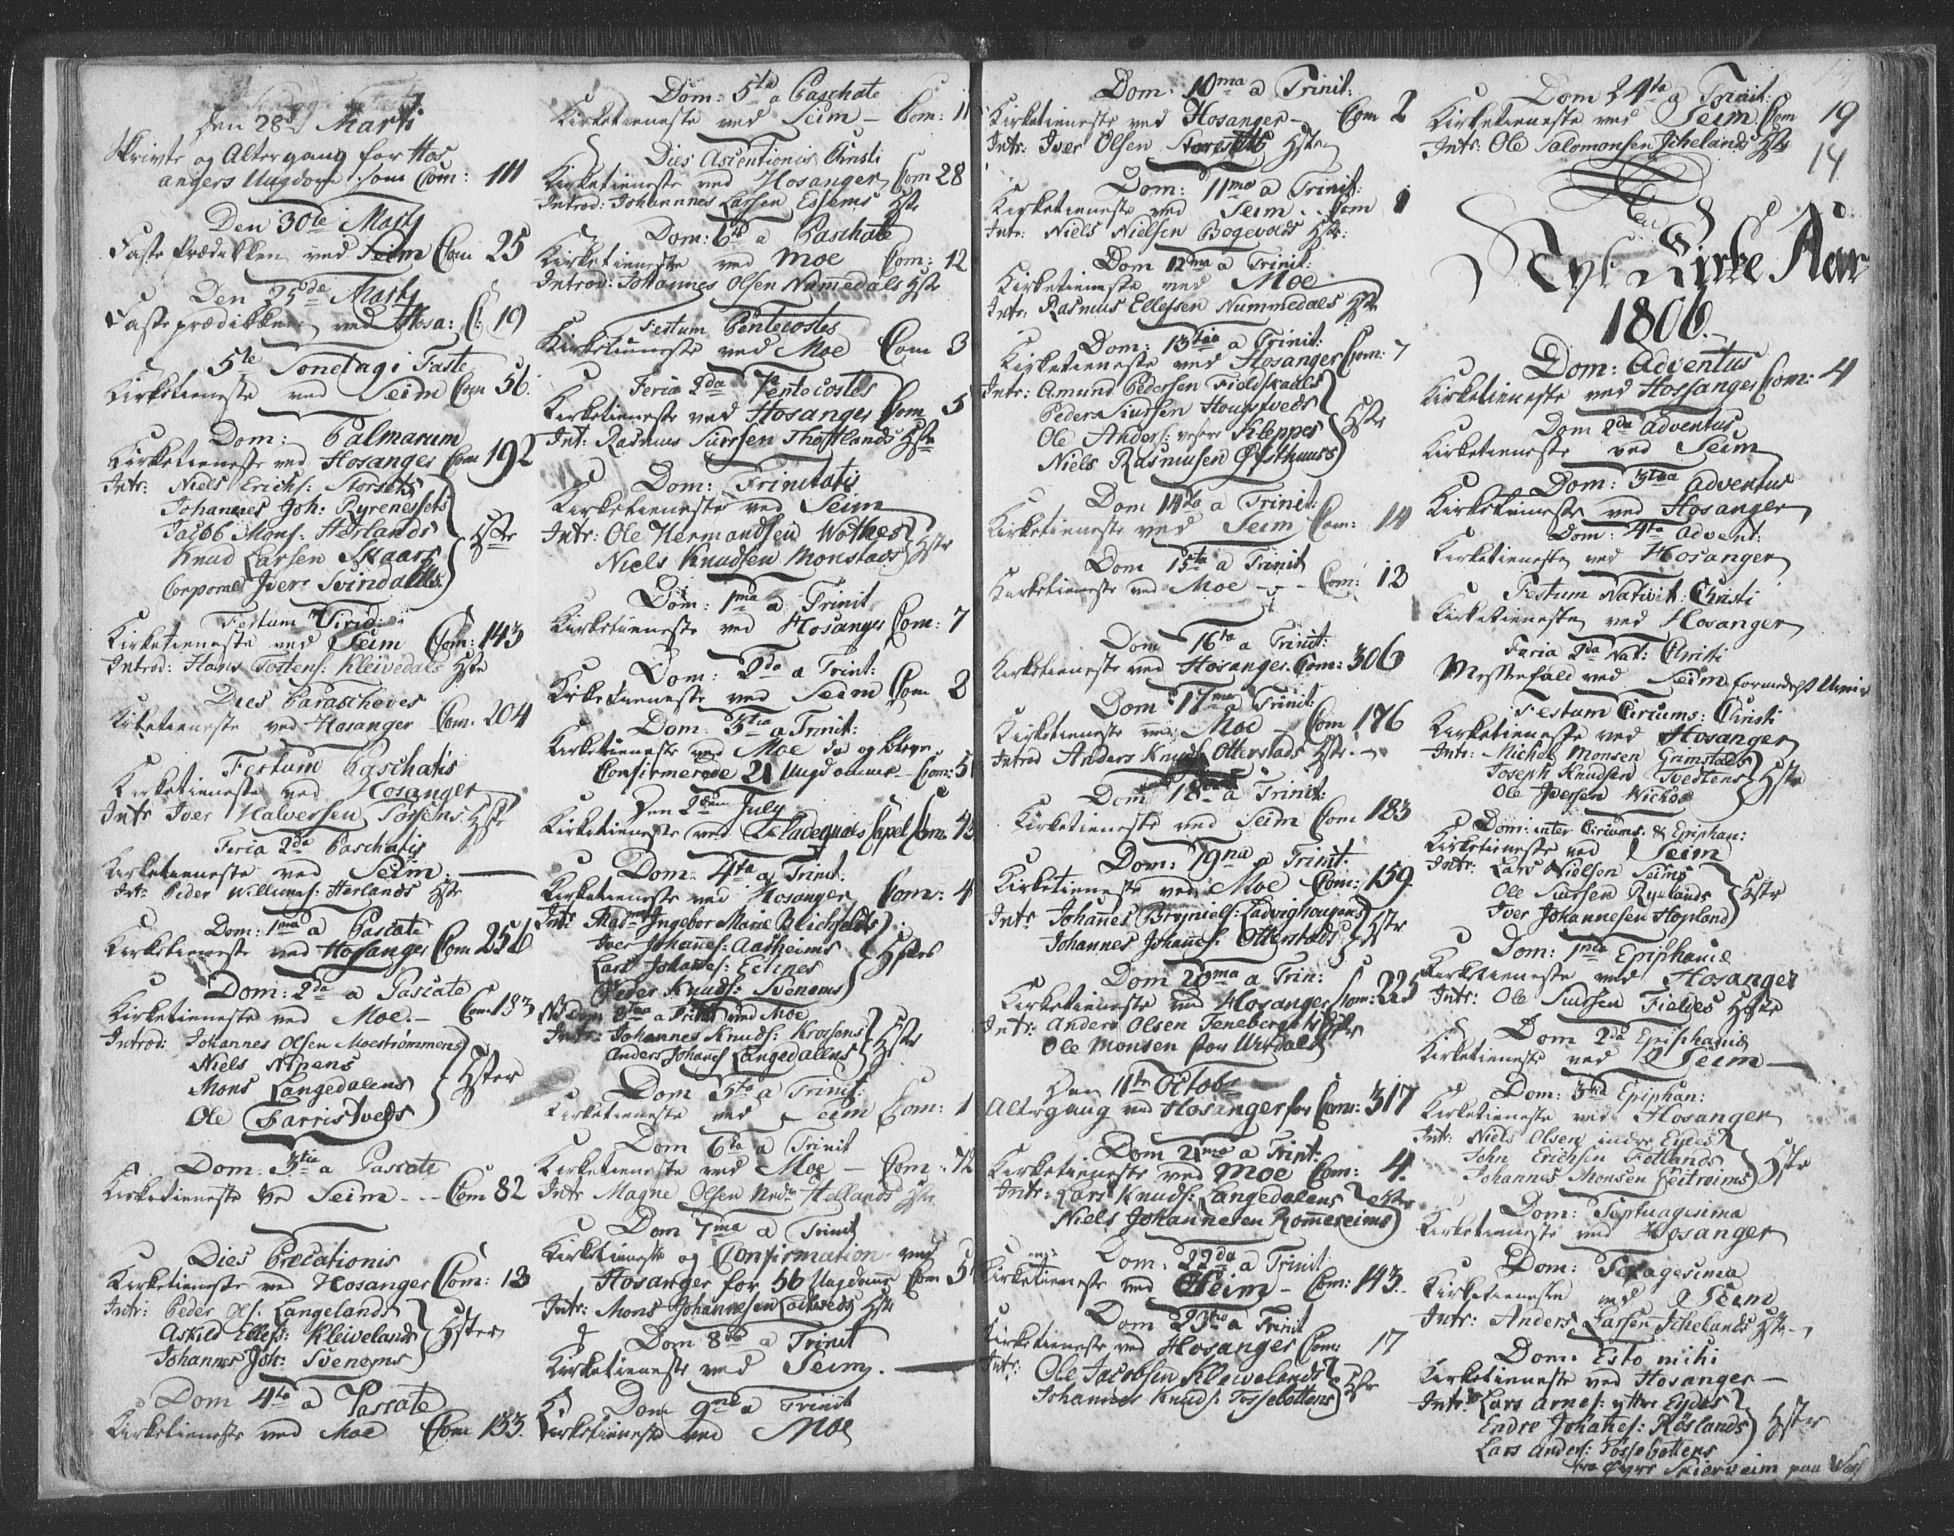 den 28de Marti
Skrivte og Altergang for Hos
angers Ungdom som Com: 111
Den 30te Martj
Faste Prædikken ved Seim Com 25
Den 25de Martj
Fasteprædikken ved Hosa: C: 19
5te Søndag i Faste
Kirketieneste ved Seim Com 56.
Dom: Palmarum
Kirketieneste ved Hosanger Com 192
Intr: Niels Erichs: Storsets
Johannes Joh: Ryrenessets
Jacob Mons: Herlands
Knud Larsen Skaars
Corporal Iver Svindalls
Hstr
Festum Virid:
Kirketieneste ved Seim Com: 143
Introd: Hans Tostens: Kleivedals Hstr
Dies Parascheves
Kirketieneste ved Hosanger Com. 204
Festum Paschatis
Kirketieneste ved Hosanger
Intr Iver Halversen Hstr
Feria 2da Paschatis
Kirketieneste ved Seim.
Intr Peder Willums: Herlands Hstr
Dom: 1ma a Pascate
Kirketieneste ved Hosanger Com 251
Dom: 2da a Pascate
Kirketieneste ved Moe. Com 183
Introd: Johannes Olsen Moestrømmens
Niels Nipens
Mons Langedalens
Ole Farristveds
Hster
Dom: 3tia a Pascate
Kirketieneste ved Seim - - Com 82
Dies Precationis
Kirketieneste ved Hosanger Com: 13
Intr: Peder Ols: Langeland
Askild Ellefs: Kleivelands
Johannes Joh: Svenems
Hster
Dom 4ta a Pascate
Kirketieneste ved Moe Com 133.
Dom: 5ta a Paschate
Kirketieneste ved Seim - Com: 11
Dies Ascentionis Christi
Kirketieneste ved Hosanger Com 28
Introd: Johannes Larsen Hstr
Dom: 6ta a Paschate
Kirketieneste ved Moe Com: 12
Introd: Johannes Olsen Nummedals Hstr
Festum Pentecostes
Kirketieneste ved Moe Com 3
Feria 2da Pentecostes
Kirketieneste ved Hosanger Com 5
Int: Rasmus Siursen Hstr
Dom: Trinitatis
Kirketieneste ved Seim
Intr: Ole Hermandsen Wothes
Niels Knudsen Monstads
Hstr
Dom: 1ma a Trinit
Kirketieneste ved Hosanger Com: 7
Dom: 2da a Trint:
Kirketieneste ved Seim Com 2
Dom: 3tia a Trinit:
Kirketieneste ved Moe da og blev
Confirmerede 21 Ungdomme - Com: 5
Den July
Kirketieneste ved Capel Com
Dom: 4ta a Trinit.
Kirketieneste ved Hosanger Com: 4
Int: Mad: Ingebor Marie Blichfeldts
Iver Johannes: Aasheims
Lars Johannes: Eitnes
Peder Knuds: Svenems
Hster
NB Dom 3tia a Trinit ved Moe
Intr: Johannes Knuds: Krossens
Anders Johanes Langedalens
Hstr
Dom 5ta a Trinit:
Kirketieneste ved Seim Com: 1
Dom 6ta a Trinit
Kirketieneste ved Moe - Com. 72
Intr Magne Olsen Nedr Hellands Hstr
Dom 7ma a Trinit
Kirketieneste og Confirmation ved
Hosanger for 56 Ungdomme Com 5
Intr: Mons Johannesen Hstr
Dom 8va a Trinit
Kirketieneste ved Seim.
Dom 9na a Trinit
Kirketieneste ved Moe
Dom: 10ma a Trinit:
Kirketieneste ved Hosanger - Com 2
Intr: Iver Olsen Hstr
Dom: 11ma a Trinit:
Kirketieneste ved Seim . . Com 1
Intr: Niels Nielsen Bogevolds Hstr.
Dom 12ma a Trinit:
Kirketieneste ved Moe
Intr: Rasmus Ellefsen Nummedals Hstr
Dom: 13tia a Trinit:
Kirketieneste ved Hosanger Com: 7
Intr: Amund Pedersen Fieldskaals
Peder Siursen
Ole Anders: Kleppes
Niels Rasmusen Østhuuss
Hstr
Dom 14ta a Trinit:
Kirketieneste ved Seim Com: 14
Dom 15ta a Trinit
Kirketieneste ved Moe - - - Com: 13
Dom 16ta a Trinit:
Kirketieneste ved Hosanger. Com: 306
Dom: 17ma a Trinit:
Kirketieneste ved Moe - Com 176
Introd Anders Knuds Otterstads Hstr.
Dom 18va a Trinit:
Kirketieneste ved Seim Com 183
Dom: 19na a Trinit:
Kirketieneste ved Moe Com: 159.
Intr Johannes Bryniels: Ladvighougens
Johannes Johannes: Otterstads
Hstr
Dom 20ma a Trin:
Kirketieneste ved Hosanger Com: 225
Intr: Anders Olsen Tenebergets
Ole Monsen paa Urdals
Hstr
Den 11te Octobr
Altergang ved Hosanger for Com: 317
Dom 21ma a Trint:
Kirketieneste ved Moe Com: 4.
Intr: Lars Knuds: Langedalens
Niels Johannesen Romereims
Hstr.
Dom: 22da a Trinit
Kirketieneste ved Seim - Com: 143.
Dom 23tia a Trinit
Kirketieneste ved Hosanger Com: 17
Intr: Ole Jacobsen Kleivelands
Johannes Knuds: Fossebottens
Hstr
Dom 24ta a Trinit:
Kirketieneste ved Seim Com 19
Intr: Ole Salomonsen Ichelands Hstr
14
Det
Nye Kirke Aar
1806.
Dom: Adventus
Kirketieneste ved Hossanger Com: 4
Dom 2da Adventus
Kirketieneste ved Seim
Dom: 3tia Adventus
Kirketieneste ved Hosanger
Dom: 4ta Advent:
Kirketieneste ved Hosanger
Festum Nativit: Christi
Kirketieneste ved Hosanger
Feria 2da Nat: Christi
Messefald ved Seim formedelst Uveir
Festum Circums: Christi
Kirketieneste ved Hosanger
Intr: Michel Monsen Grimstads
Joseph Knudsen Tvedtens
Ole Iversen Wichoe
Hstr
Dom: inter Circums. & Epiphan:
Kirketieneste ved Seim
Intr: Lars Nielsen Seims
Ole Siursen Ryelands
Iver Johannesen Hopland
Hstr
Dom: 1ma Epiphanie
Kirketieneste ved Hosanger
Intr: Ole Siursen Fieldes Hstr
Dom 2da Epiphanie
Kirketieneste ved Seim
Dom: 3tia Epiphan:
Kirketieneste ved Hosanger
Intr: Niels Olsen indre Eydes
John Erichsen Fetlands
Johannes Monsen Leitreims
Hstr
Dom: Septuagesima
Kirketieneste ved Hosanger
Dom: Sexagesima
Kirketieneste ved Seim
Intr: Anders Larsen Ichelands Hstr
Dom: Esto mihi
Kirketieneste ved Hosanger
Intr: Lars Arnes: yttre Eydes
Endre Johannes: Røslands
Lars Anders: Fossebottens
Hstr
fra Øvre Skierveim paa Vos